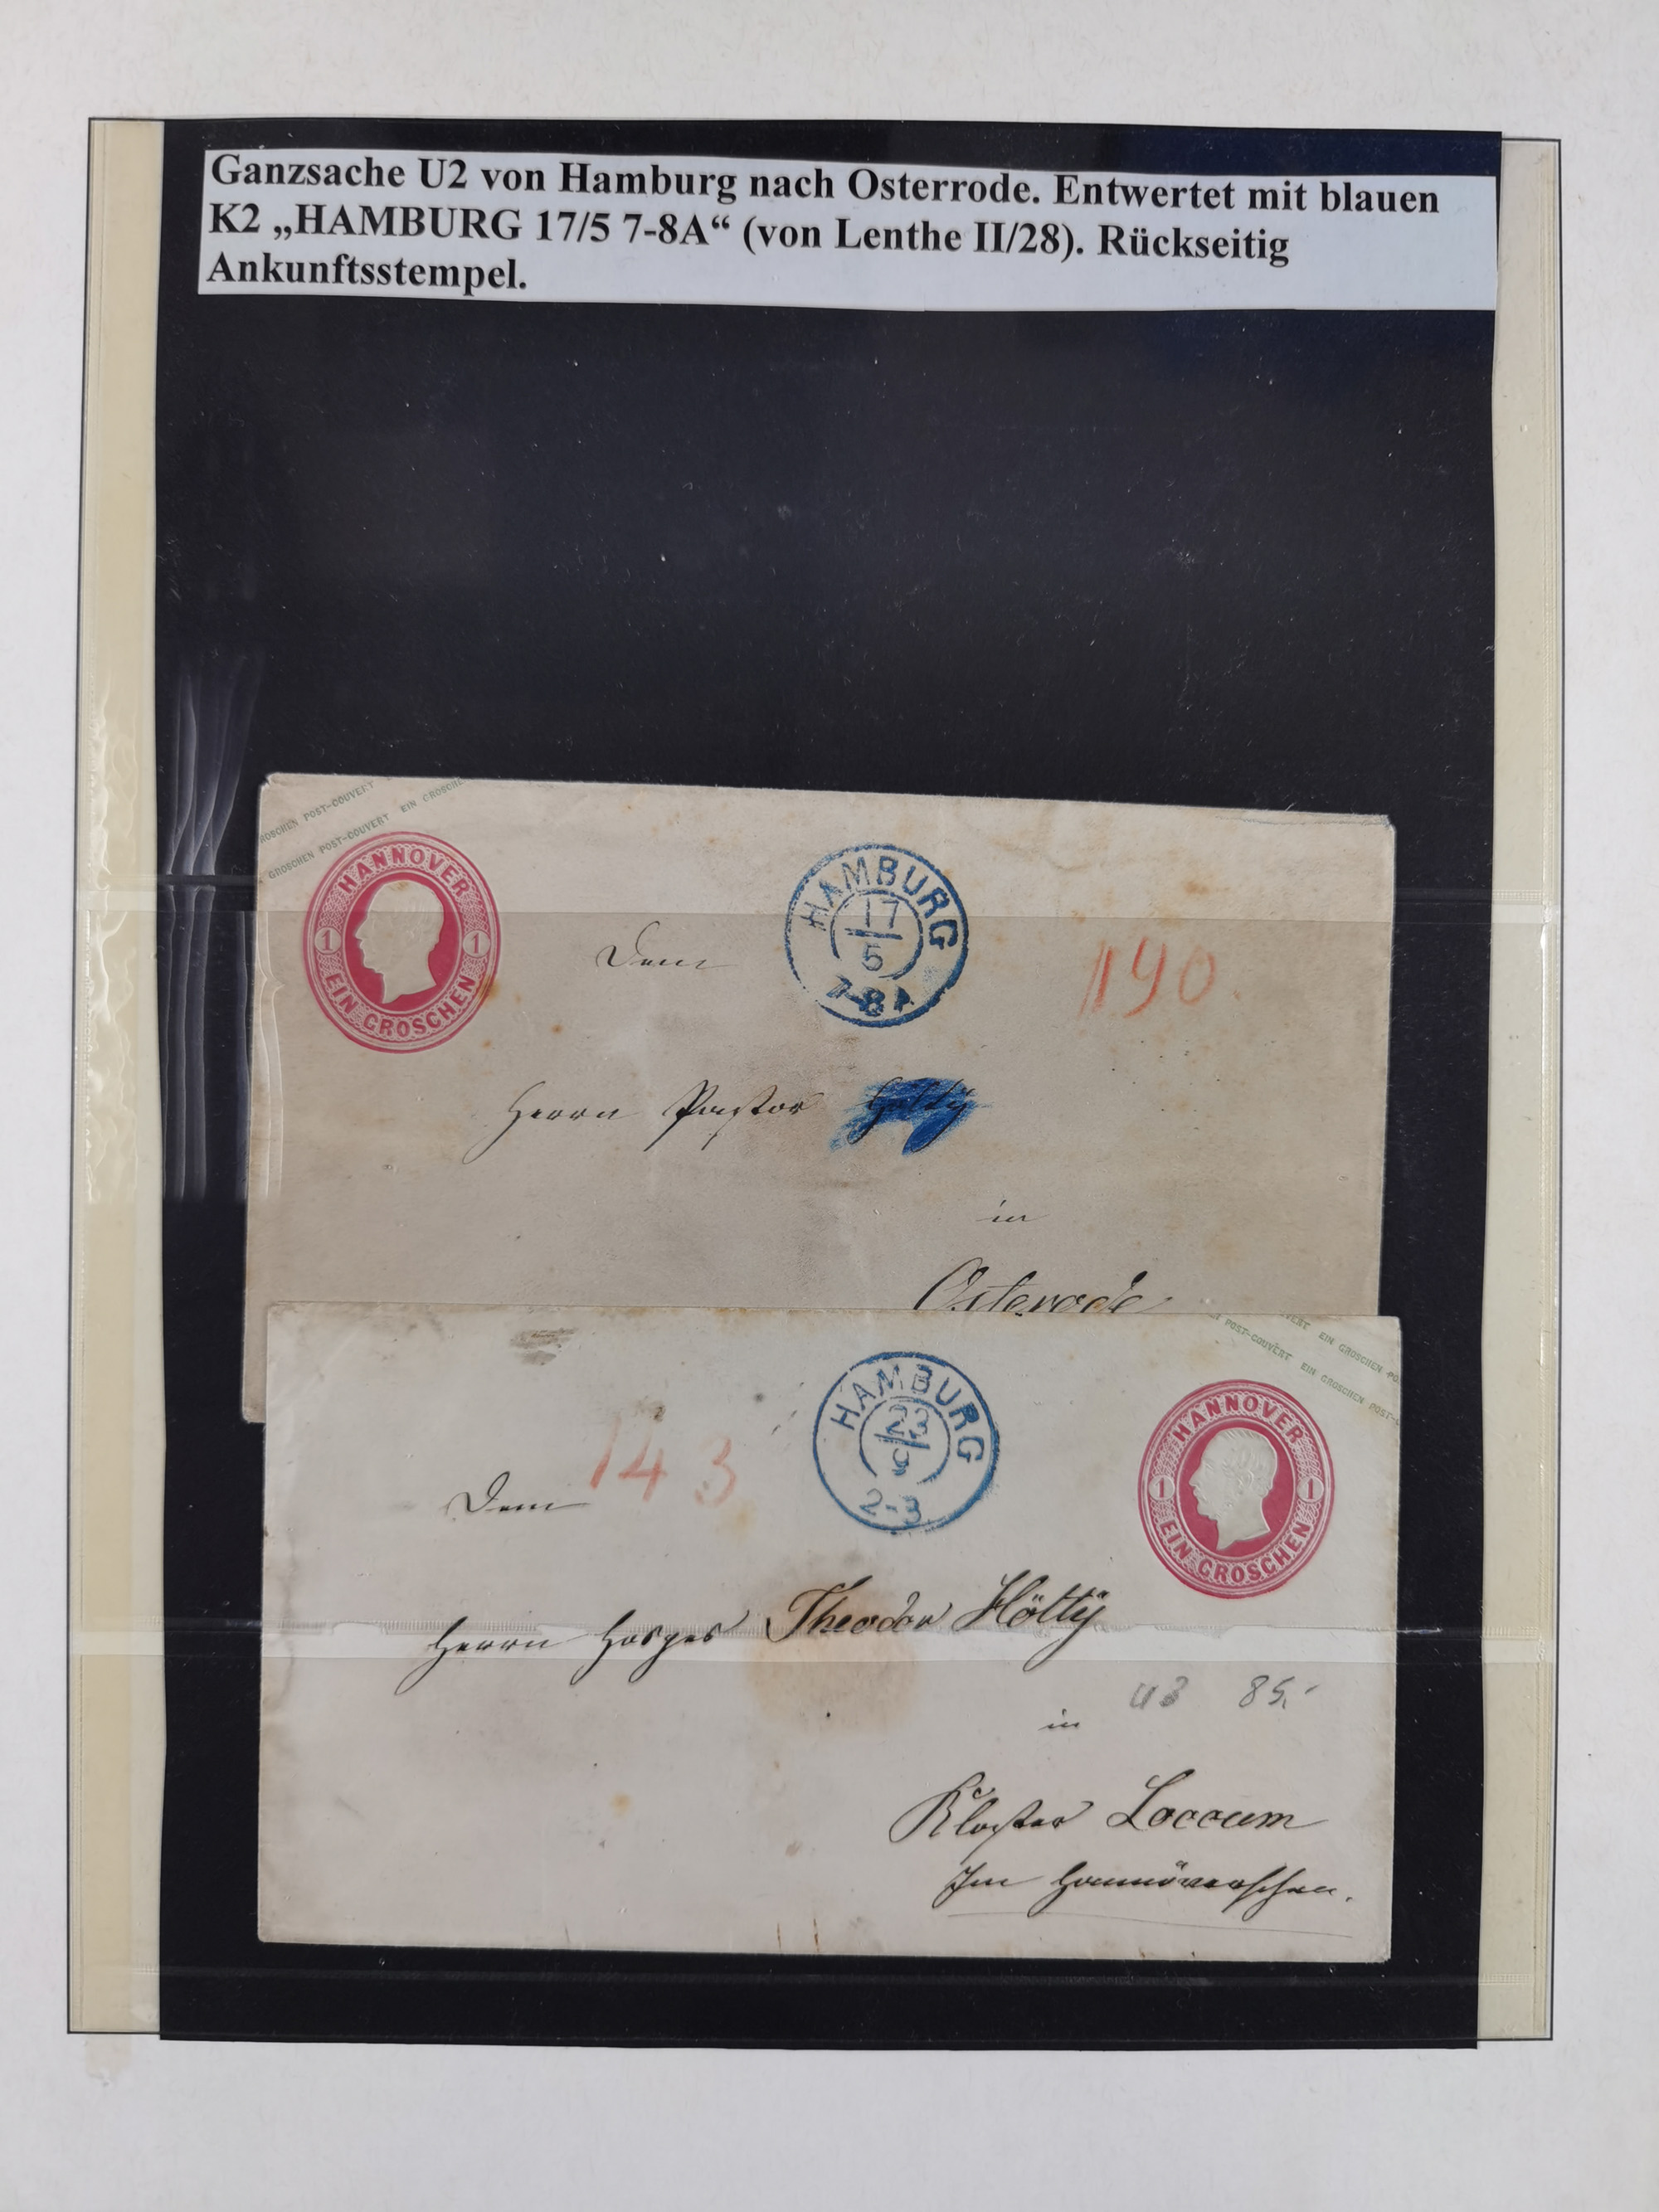 Ganzsache U2 von Hamburg nach Osterrode. Entwertet mit blauen
K2 „HAMBURG 17/5 7-8A“ (von Lenthe II/28). Rückseitig
Ankunftsstempel.
GROSCHEN POST-COUVERT
GROSCHEN POST-COUVERT EIN GROSCHEN
HANNOVER
1 1
EIN GROSCHEN
HAMBURG
17
5
7-8A
190
Dem
Herrn Pastor Hölty
in
Osterode
POST-COUVERT EIN GROSCHEN POST-
EIN GROSCHEN PO
HAMBURG
23
9
2-3
HANNOVER
1 1
EIN GROSCHEN
143
Dem
Herrn Hospes Theodor Hölty
in
U3 85,-
Kloster Loccum
Im Hannöverschen.